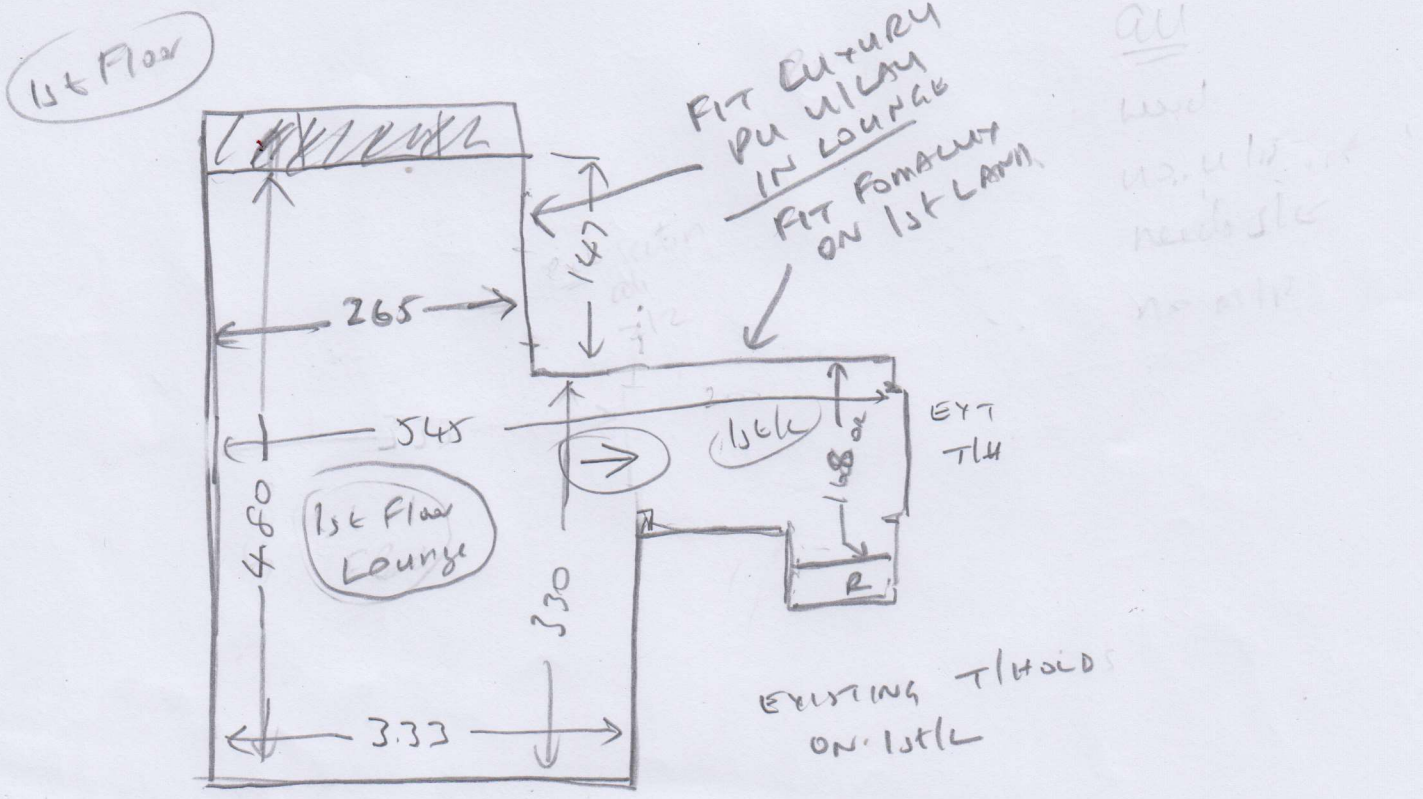 1st Floor
FIT LUXURY
PU U/LAY
IN LOUNGE
FIT FOMALUX
ON 1st LAND
147
265
545
1st/L
EXT
T/H
168
1st Floor
Lounge
480
330
R
3.33
EXISTING T/HOLD
ON 1st/L